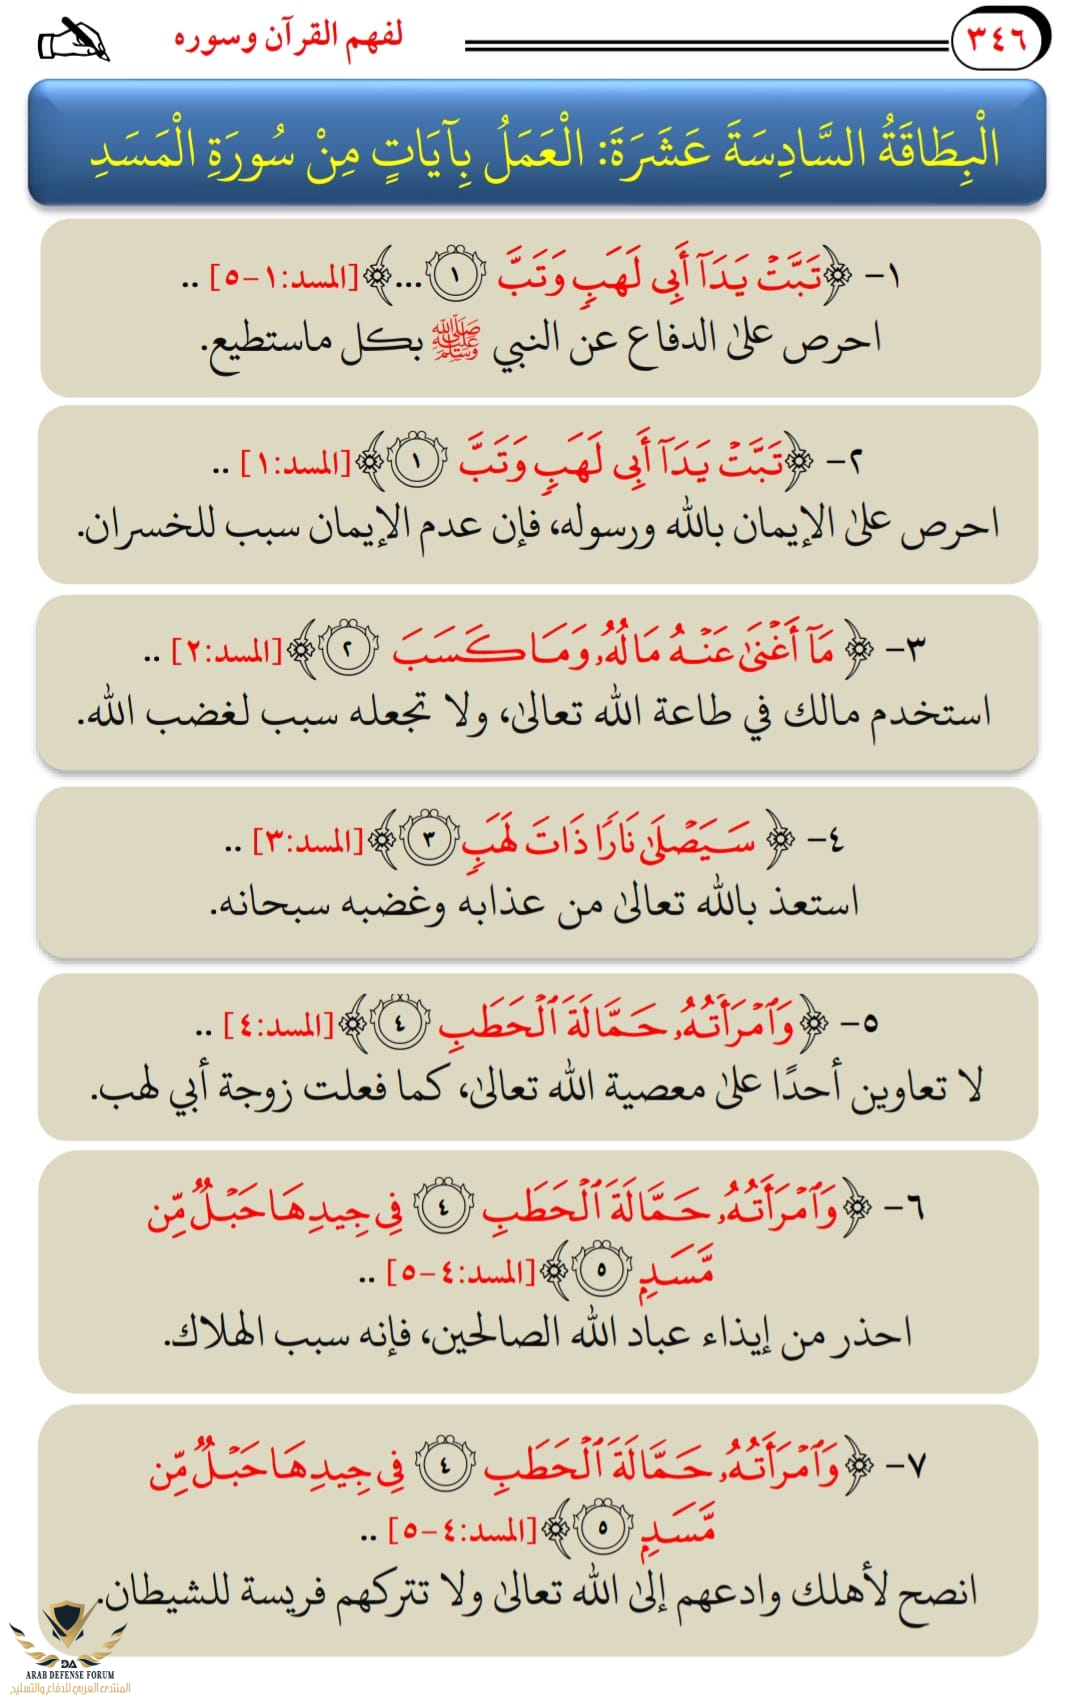 ٣٤٦
لفهم القرآن وسوره
الْبِطَاقَةُ السَّادِسَةَ عَشَرَةَ: الْعَمَلُ بِآيَاتٍ مِنْ سُورَةِ الْمَسَدِ
١- ﴿تَبَّتْ يَدَآ أَبِى لَهَبٍ وَتَبَّ ١ ...﴾ [المسد:١-٥] ..
احرص علىٰ الدفاع عن النبي ﷺ بكل ماستطيع.
٢- ﴿تَبَّتْ يَدَآ أَبِى لَهَبٍ وَتَبَّ ١﴾ [المسد:١] ..
احرص علىٰ الإيمان بالله ورسوله، فإن عدم الإيمان سبب للخسران.
٣- ﴿مَآ أَغْنَىٰ عَنْهُ مَالُهُۥ وَمَا كَسَبَ ٢﴾ [المسد:٢] ..
استخدم مالك في طاعة الله تعالىٰ، ولا تجعله سبب لغضب الله.
٤- ﴿سَيَصْلَىٰ نَارًا ذَاتَ لَهَبٍ ٣﴾ [المسد:٣] ..
استعذ بالله تعالىٰ من عذابه وغضبه سبحانه.
٥- ﴿وَٱمْرَأَتُهُۥ حَمَّالَةَ ٱلْحَطَبِ ٤﴾ [المسد:٤] ..
لا تعاوين أحدًا علىٰ معصية الله تعالىٰ، كما فعلت زوجة أبي لهب.
٦- ﴿وَٱمْرَأَتُهُۥ حَمَّالَةَ ٱلْحَطَبِ ٤ فِى جِيدِهَا حَبْلٌ مِّن
مَّسَدٍۭ ٥﴾ [المسد:٤-٥] ..
احذر من إيذاء عباد الله الصالحين، فإنه سبب الهلاك.
٧- ﴿وَٱمْرَأَتُهُۥ حَمَّالَةَ ٱلْحَطَبِ ٤ فِى جِيدِهَا حَبْلٌ مِّن
مَّسَدٍۭ ٥﴾ [المسد:٤-٥] ..
انصح لأهلك وادعهم إلىٰ الله تعالىٰ ولا تتركهم فريسة للشيطان.
DA
ARAB DEFENSE FORUM
المنتدى العربي للدفاع والتسليح